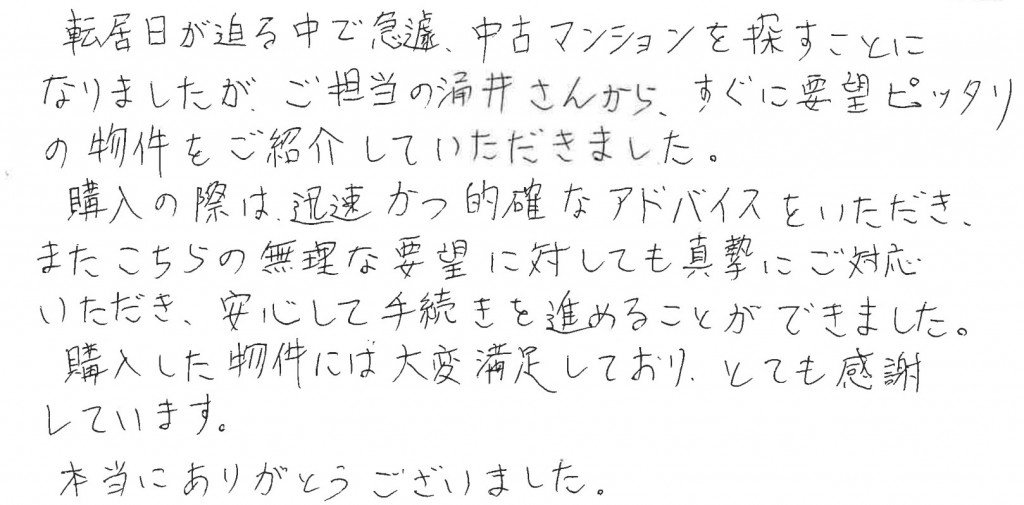 転居日が迫る中で急遽、中古マンションを探すことに
なりましたが、ご担当の涌井さんから、すぐに要望ピッタリ
の物件をご紹介していただきました。
購入の際は、迅速かつ的確なアドバイスをいただき、
またこちらの無理な要望に対しても真摯にご対応
いただき、安心して手続きを進めることができました。
購入した物件には大変満足しており、とても感謝
しています。
本当にありがとうございました。